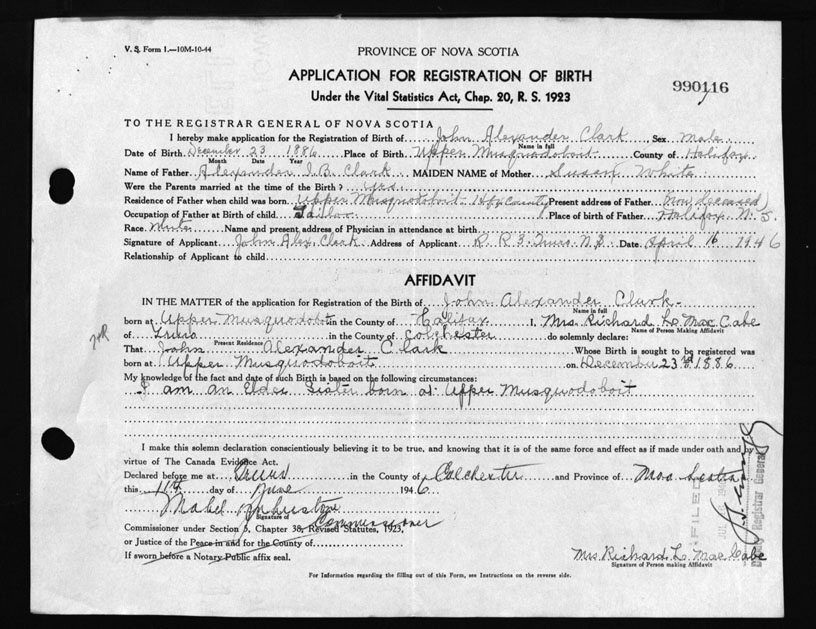 V. S. Form 1.—10M-10-44
PROVINCE OF NOVA SCOTIA
APPLICATION FOR REGISTRATION OF BIRTH
Under the Vital Statistics Act, Chap. 20, R. S. 1923
990116
TO THE REGISTRAR GENERAL OF NOVA SCOTIA
I hereby make application for the Registration of Birth of John Alexander Clark Sex Male
Name in full
Date of Birth December 23 1886 Place of Birth Upper Musquodoboit County of Halifax
Month Date Year
Name of Father Alexander I. B. Clark MAIDEN NAME of Mother Susan White
Were the Parents married at the time of the Birth? Yes
Residence of Father when child was born Upper Musquodoboit Hfx County Present address of Father Now deceased
Occupation of Father at Birth of child Tailor Place of birth of Father Halifax N. S.
Race White Name and present address of Physician in attendance at birth
Signature of Applicant John Alex. Clark Address of Applicant R. R. 3. Truro N.S Date April 16 1946
Relationship of Applicant to child
AFFIDAVIT
IN THE MATTER of the application for Registration of the Birth of John Alexander Clark
Name in full
born at Upper Musquodobt in the County of Halifax I, Mrs. Richard L. Mac Cabe
Name of Person Making Affidavit
of Truro in the County of Colchester do solemnly declare:
Present Residence
That John Alexander Clark Whose Birth is sought to be registered was
born at Upper Musquodoboit on December 23rd 1886
My knowledge of the fact and date of such Birth is based on the following circumstances:
I am an Elder Sister born at Upper Musquodoboit
I make this solemn declaration conscientiously believing it to be true, and knowing that it is of the same force and effect as if made under oath and by
virtue of The Canada Evidence Act.
Declared before me at Truro in the County of Colchester and Province of Nova Scotia
this 11th day of June 1946
Mabel Johnston
Signature of
Commissioner
Commissioner under Section 5, Chapter 38, Revised Statutes, 1923,
or Justice of the Peace in and for the County of
If sworn before a Notary Public affix seal.
FILED
Deputy Registrar General
Mrs. Richard L. Mac Cabe
Signature of Person making Affidavit
For Information regarding the filling out of this Form, see Instructions on the reverse side.